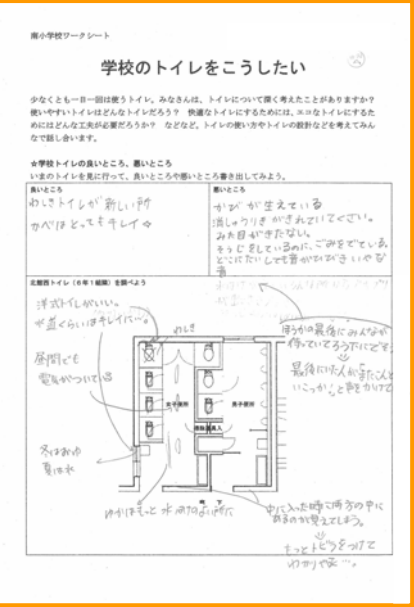 南小学校ワークシート
学校のトイレをこうしたい
少なくとも一日一回は使うトイレ。みなさんは、トイレについて深く考えたことがありますか?
使いやすいトイレはどんなトイレだろう? 快適なトイレにするためには、エコなトイレにするた
めにはどんな工夫が必要だろうか? などなど、トイレの使い方やトイレの設計などを考えてみん
なで話し合います。
☆学校トイレの良いところ、悪いところ
いまのトイレを見に行って、良いところや悪いところ書き出してみよう。
良いところ
わしきトイレが新しい所
かべはとってもキレイ
悪いところ
かびが生えている
消しゅうりきがきれていてくさい。
みた目がきたない。
そうじをしているのに、ごみをでている。
どこにたいしても音がひびきいやな
音
北館西トイレ(6年1組隣)を調べよう
洋式トイレがいい。
水道くらいはキレイに…。
わしき
昼間でも
電気がついてる
冬はおゆ
夏は水
女子便所
男子便所
掃除道具入
廊下
ゆかはもっと水はけのよい所に
ほうかの最後にみんなが
待っていてろうかにです。
最後にいた人が
と声をかけて
中に入った時に両方の中に
あるのが見えてしまう。
もっとトビラをつけて
わかりや